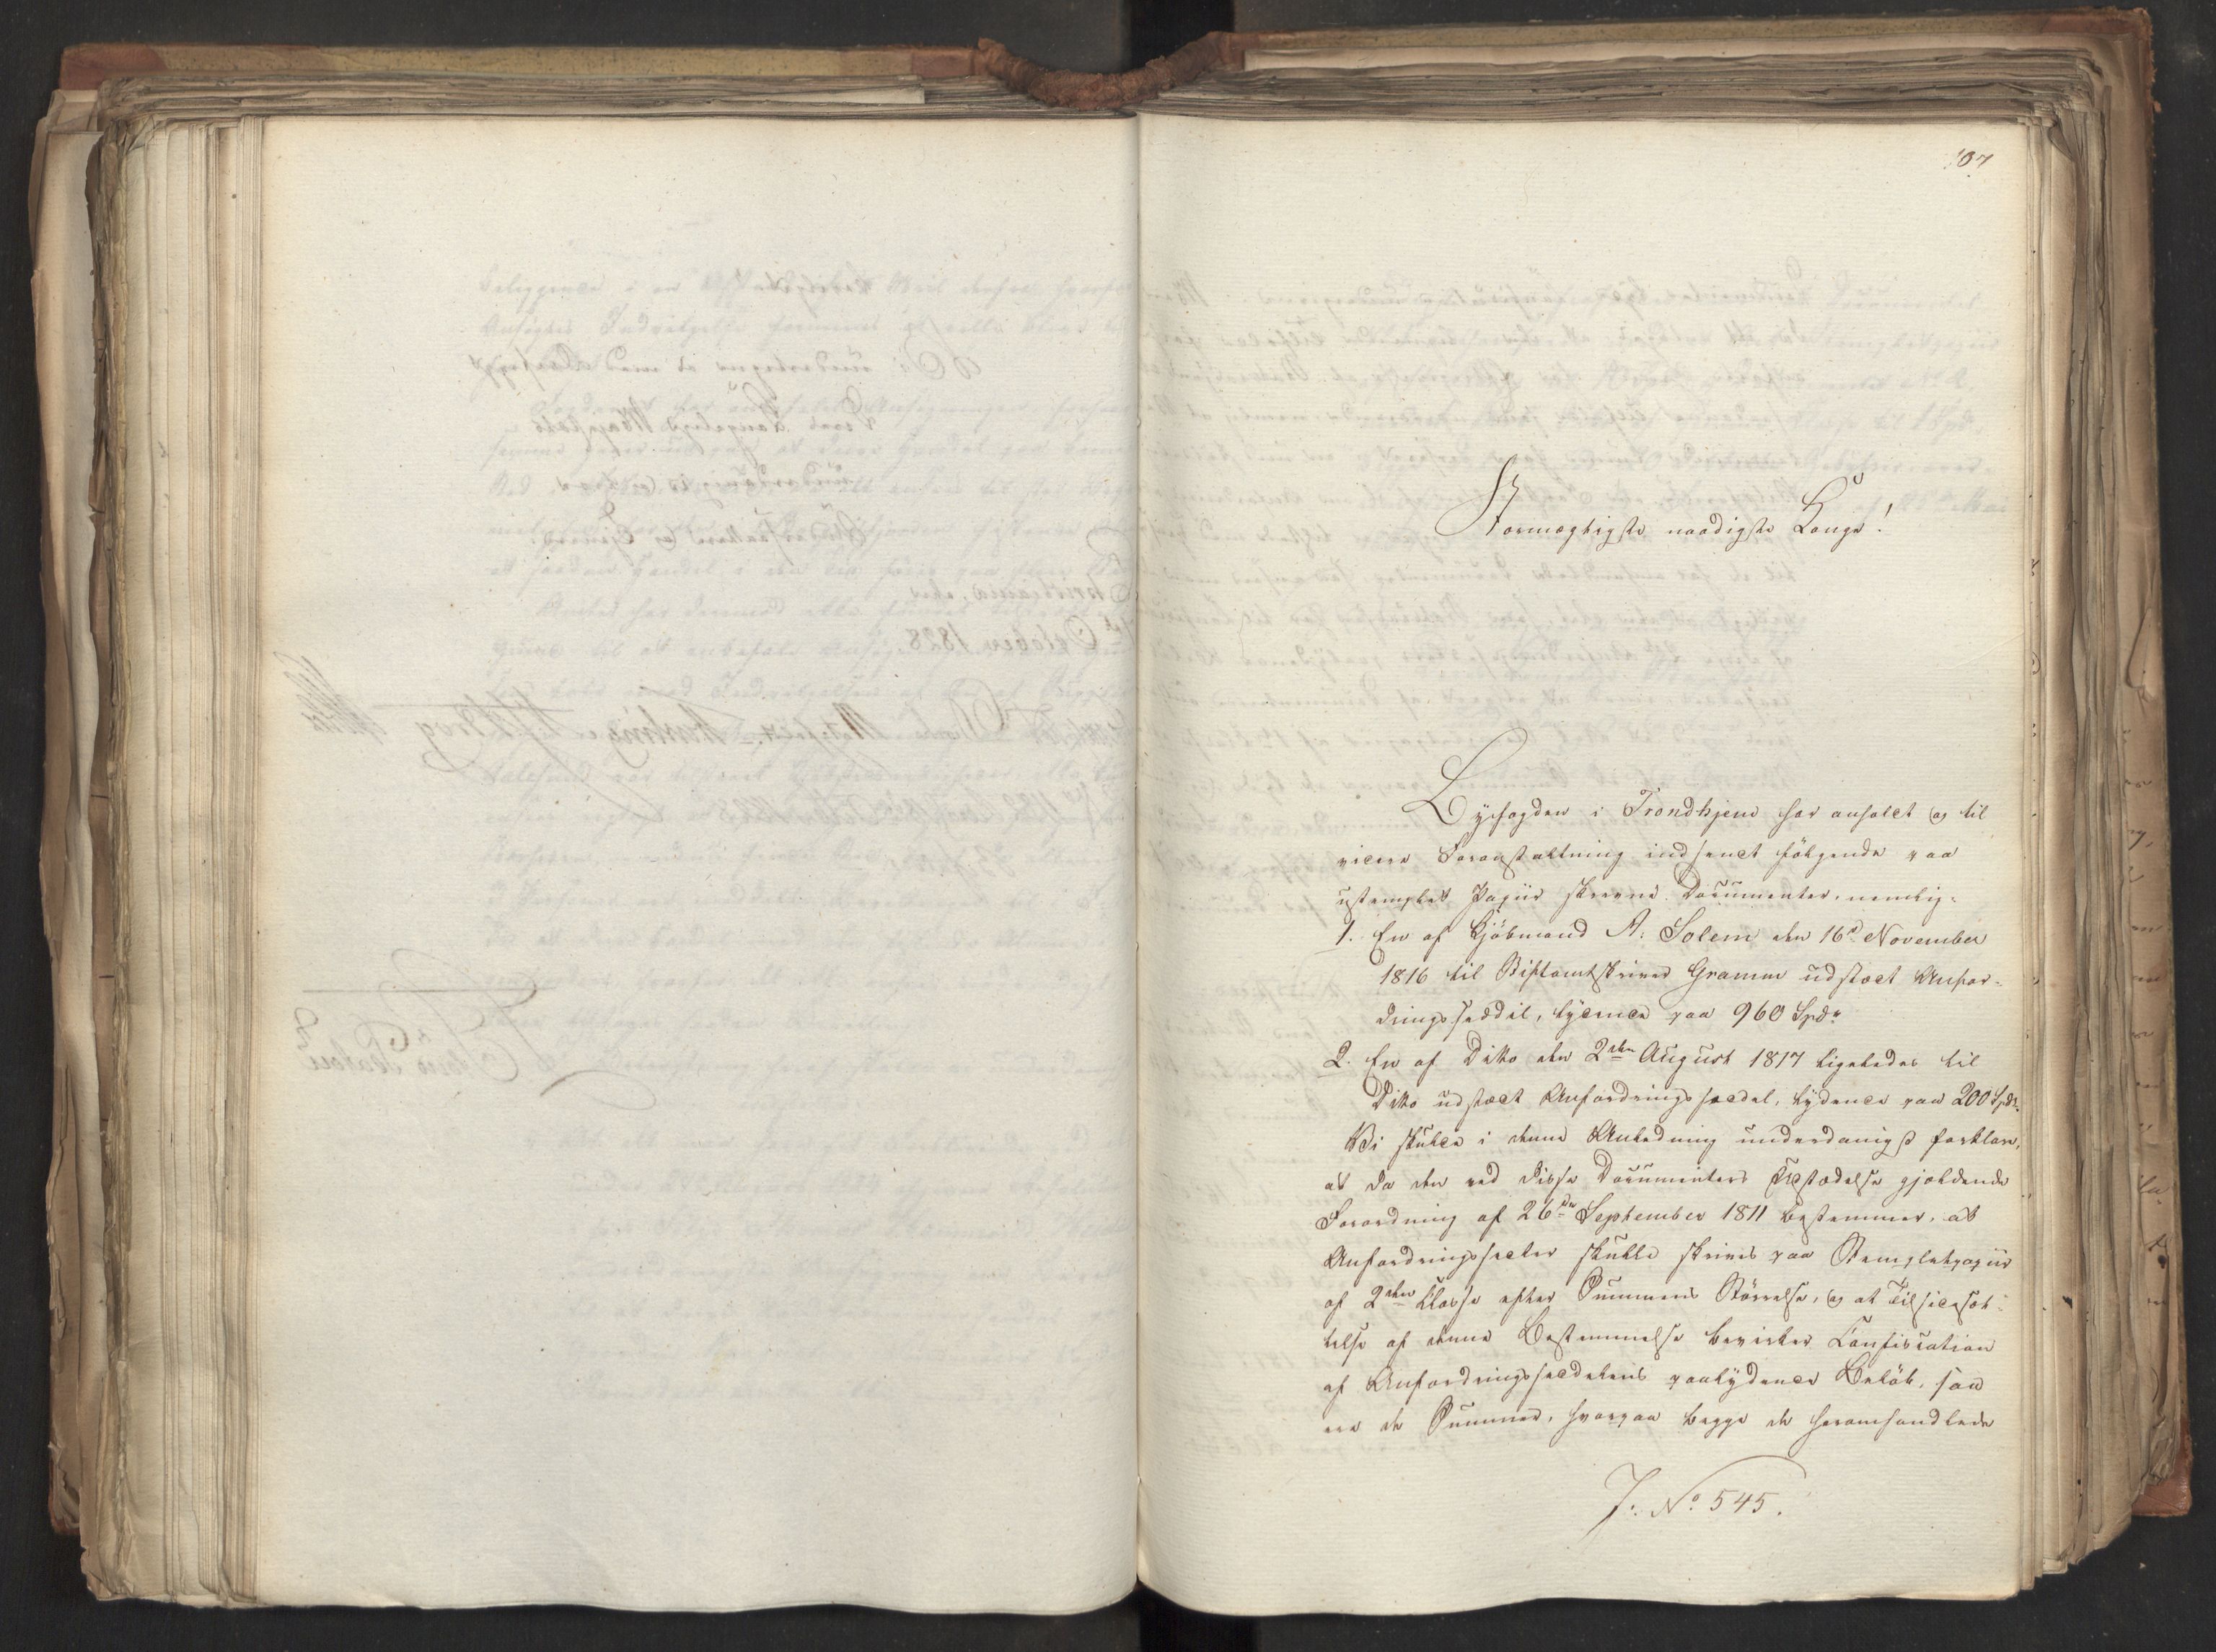 107
Stormægtigste naadigste Konge!
Byfogden i Trondhjem har anholdt og til
videre Foranstaltning indsendt følgende paa
ustemplet Papiir skrevne Documenter, nemlig:
1. En af Kjøbmand A: Solem den 16d November
1816 til Stiftamtskriver Gramm udstædt Anfor-
dringsseddel, lydende paa 960 Spdr
2. En af Ditto den 2den August 1817 ligeledes til
Ditto udstædt Anfordringsseddel, lydende paa 200 Spdr.
Vi skulle i denne Anledning underdanigst forklare,
at da den ved disse Documenters Udstædelse gjældende
Forordning af 26de September 1811 bestemmer, at
Anfordringssedler skulle skrives paa Stempletpapiir
af 2den Classe efter Summens Størrelse, og at Tilsidesæt-
telse af denne Bestemmelse bevirker Confiscation
af Anfordringssedelens paalydende Beløb, saa
ere de Summer, hvorpaa begge de heromhandlede
J: No 545.